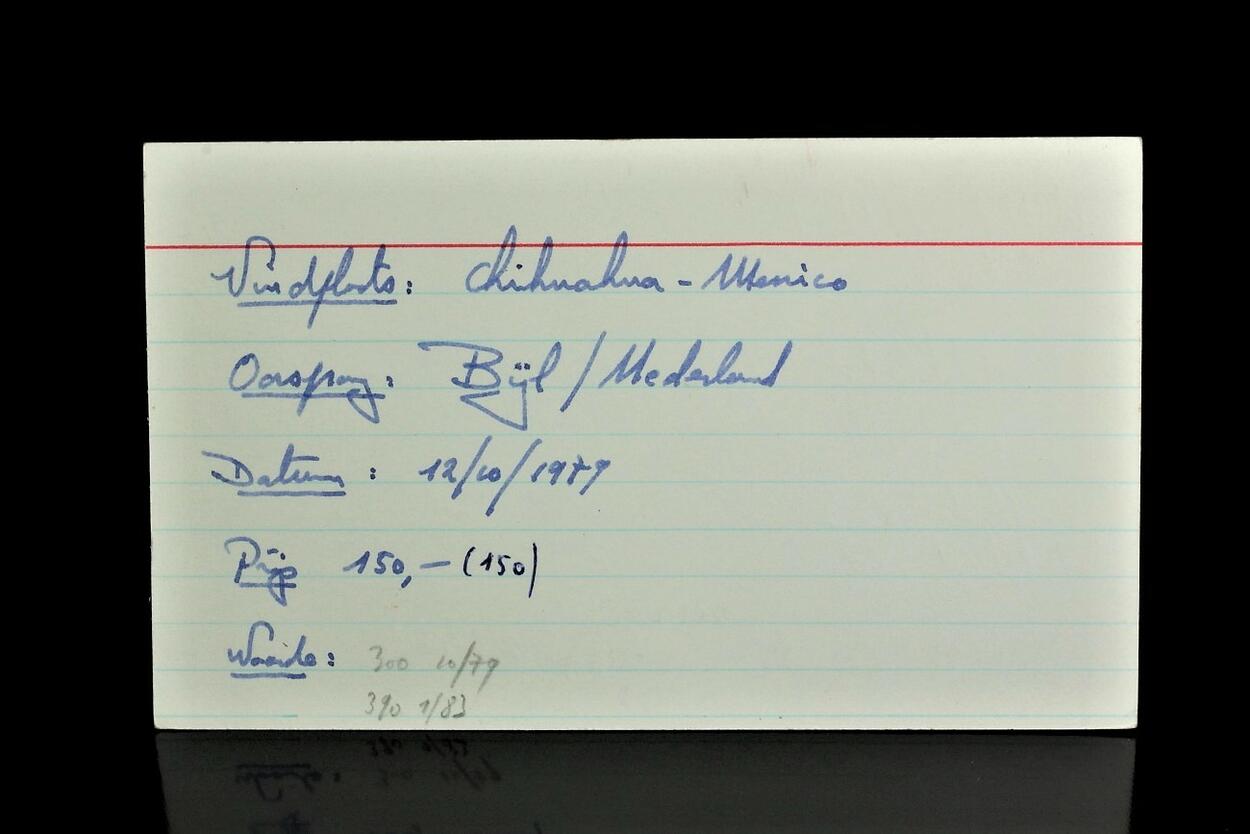 Vindplaats: Chihuahua - Mexico
Oorsprong: Bijl / Nederland
Datum : 12/10/1979
Prijs 150,- (150)
Waarde: 300 10/79
390 1/83